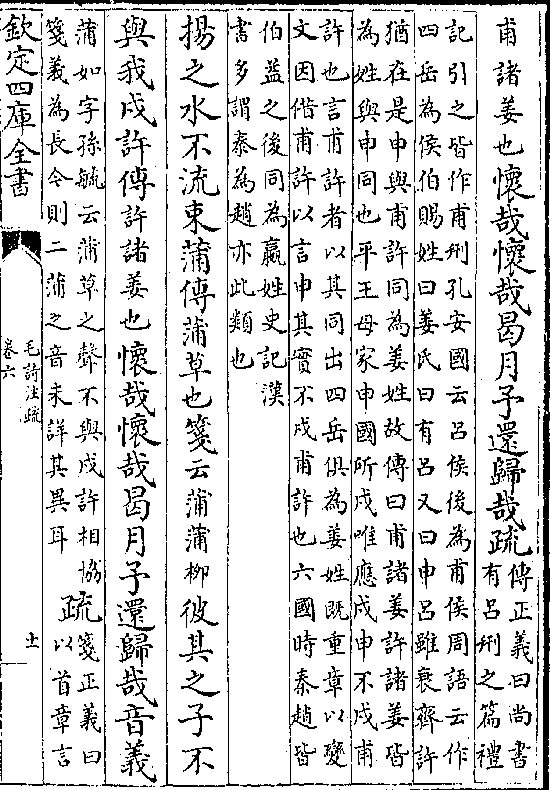 甫諸姜也懷哉懷哉曷月予還歸哉疏傳正義曰尚書
有呂刑之篇禮
記引之皆作甫刑孔安國云呂侯後為甫侯周語云作
四岳為侯伯賜姓曰姜氏曰有呂又曰申呂雖衰齊許
猶在是申與甫許同為姜姓故傳曰甫諸姜許諸姜皆
為姓與申同也平王母家申國所戍唯應戍申不戍甫
許也言甫許者以其同出四岳俱為姜姓既重章以變
文因借甫許以言申其實不戍甫許也六國時秦趙皆
伯益之後同為嬴姓史記漢
書多謂秦為趙亦此類也
揚之水不流束蒲傳蒲草也箋云蒲蒲柳彼其之子不
與我戍許傳許諸姜也懷哉懷哉曷月予還歸哉音義
蒲如字孫毓云蒲草之聲不與戍許相協
箋義為長今則二蒲之音未詳其異耳
疏箋正義曰
以首章言
欽定四庫全書
毛詩注疏
卷六
十一